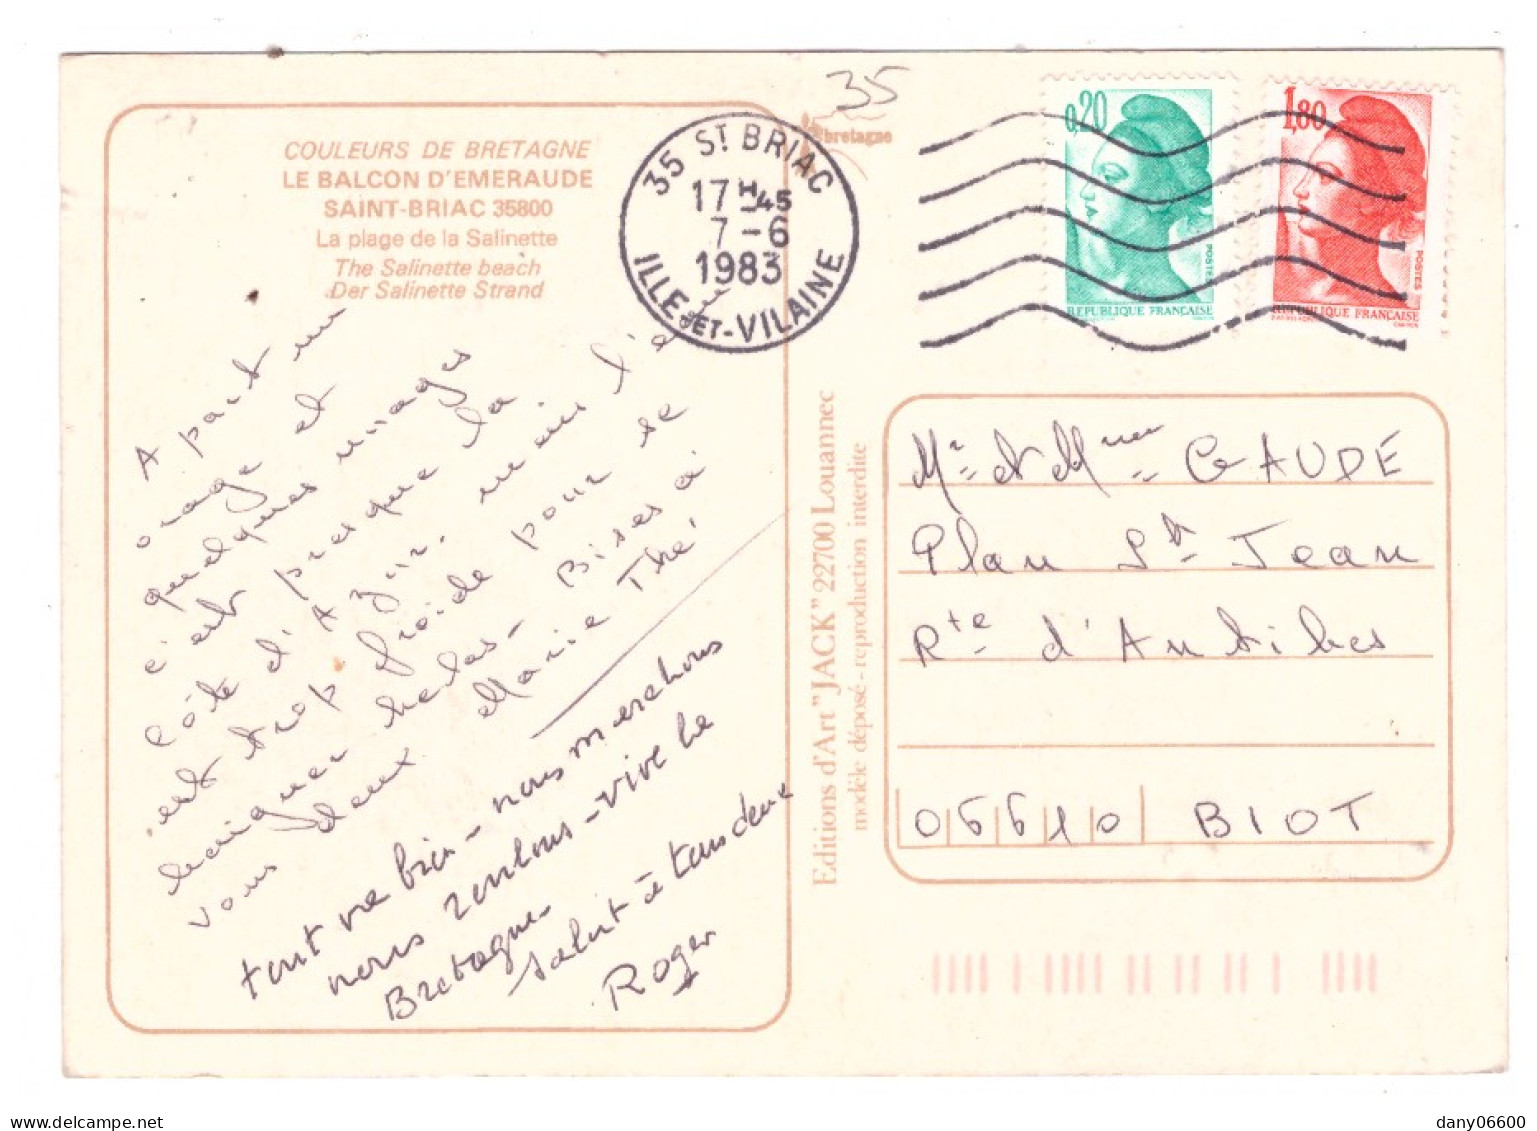 COULEURS DE BRETAGNE
LE BALCON D'EMERAUDE
SAINT-BRIAC 35800
La plage de la Salinette
The Salinette beach
Der Salinette Strand
A part un
orage et
quelques nuages
c'est presque la
Côte d'Azur, mais l'eau
est trop froide pour se
baigner helas - Bises à
vous deux Marie Thé
tout va bien - nous marchons
nous roulons - vive la
Bretagne -
Salut à tous deux
Roger
35
bretagne
35 ST BRIAC
17H45
7-6
1983
ILLE-ET-VILAINE
0,20
POSTES
REPUBLIQUE FRANÇAISE
1,80
POSTES
REPUBLIQUE FRANÇAISE
Editions d'Art "JACK" 22700 Louannec
modèle déposé - reproduction interdite
Mr et Mme GAUDE
Plan St Jean
Rte d'Antibes
06610 BIOT
dany06600